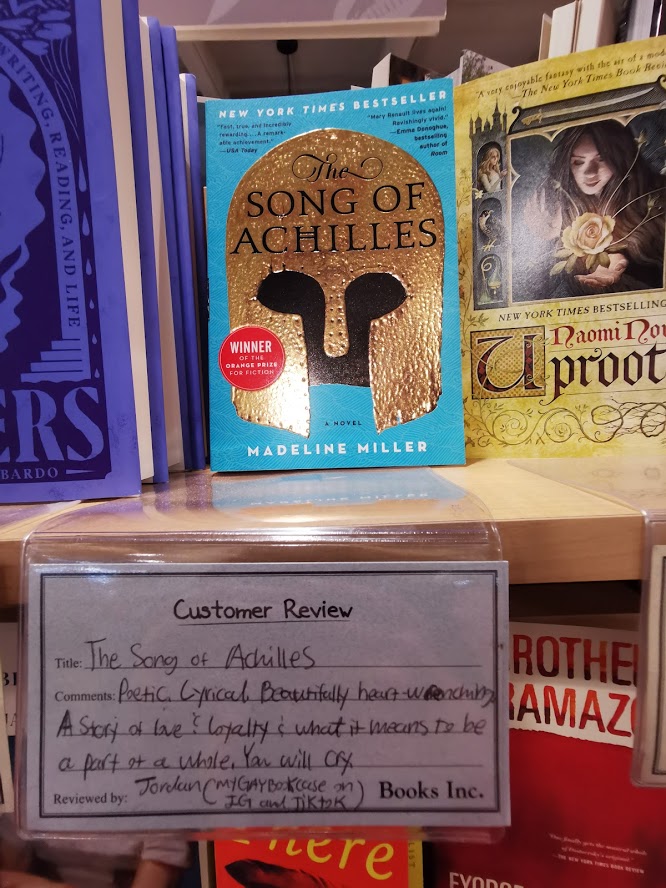 WRITING, READING, AND LIFE
ERS
BARDO
NEW YORK TIMES BESTSELLER
"Fast, true, and incredibly
rewarding... A remark-
able achievement."
—USA Today
"Mary Renault lives again!
Ravishingly vivid."
—Emma Donoghue,
bestselling
author of
Room
The
SONG OF
ACHILLES
WINNER
OF THE
ORANGE PRIZE
FOR FICTION
A NOVEL
MADELINE MILLER
"A very enjoyable fantasy with the air of a mod
—The New York Times Book Revie
NEW YORK TIMES BESTSELLING
Naomi Nov
Uproot
Customer Review
Title: The Song of Achilles
Comments: Poetic, Lyrical, Beautifully heart-wrenching
A Story of love & loyalty & what it means to be
a part of a whole. You will cry.
Reviewed by: Jordan (MYGAYBookcase on
IG and TikTok)
Books Inc.
ROTHE
RAMAZO
"One finally gets the musical whole
of Dostoevsky's original."
—THE NEW YORK TIMES BOOK REVIEW
FYODO
here